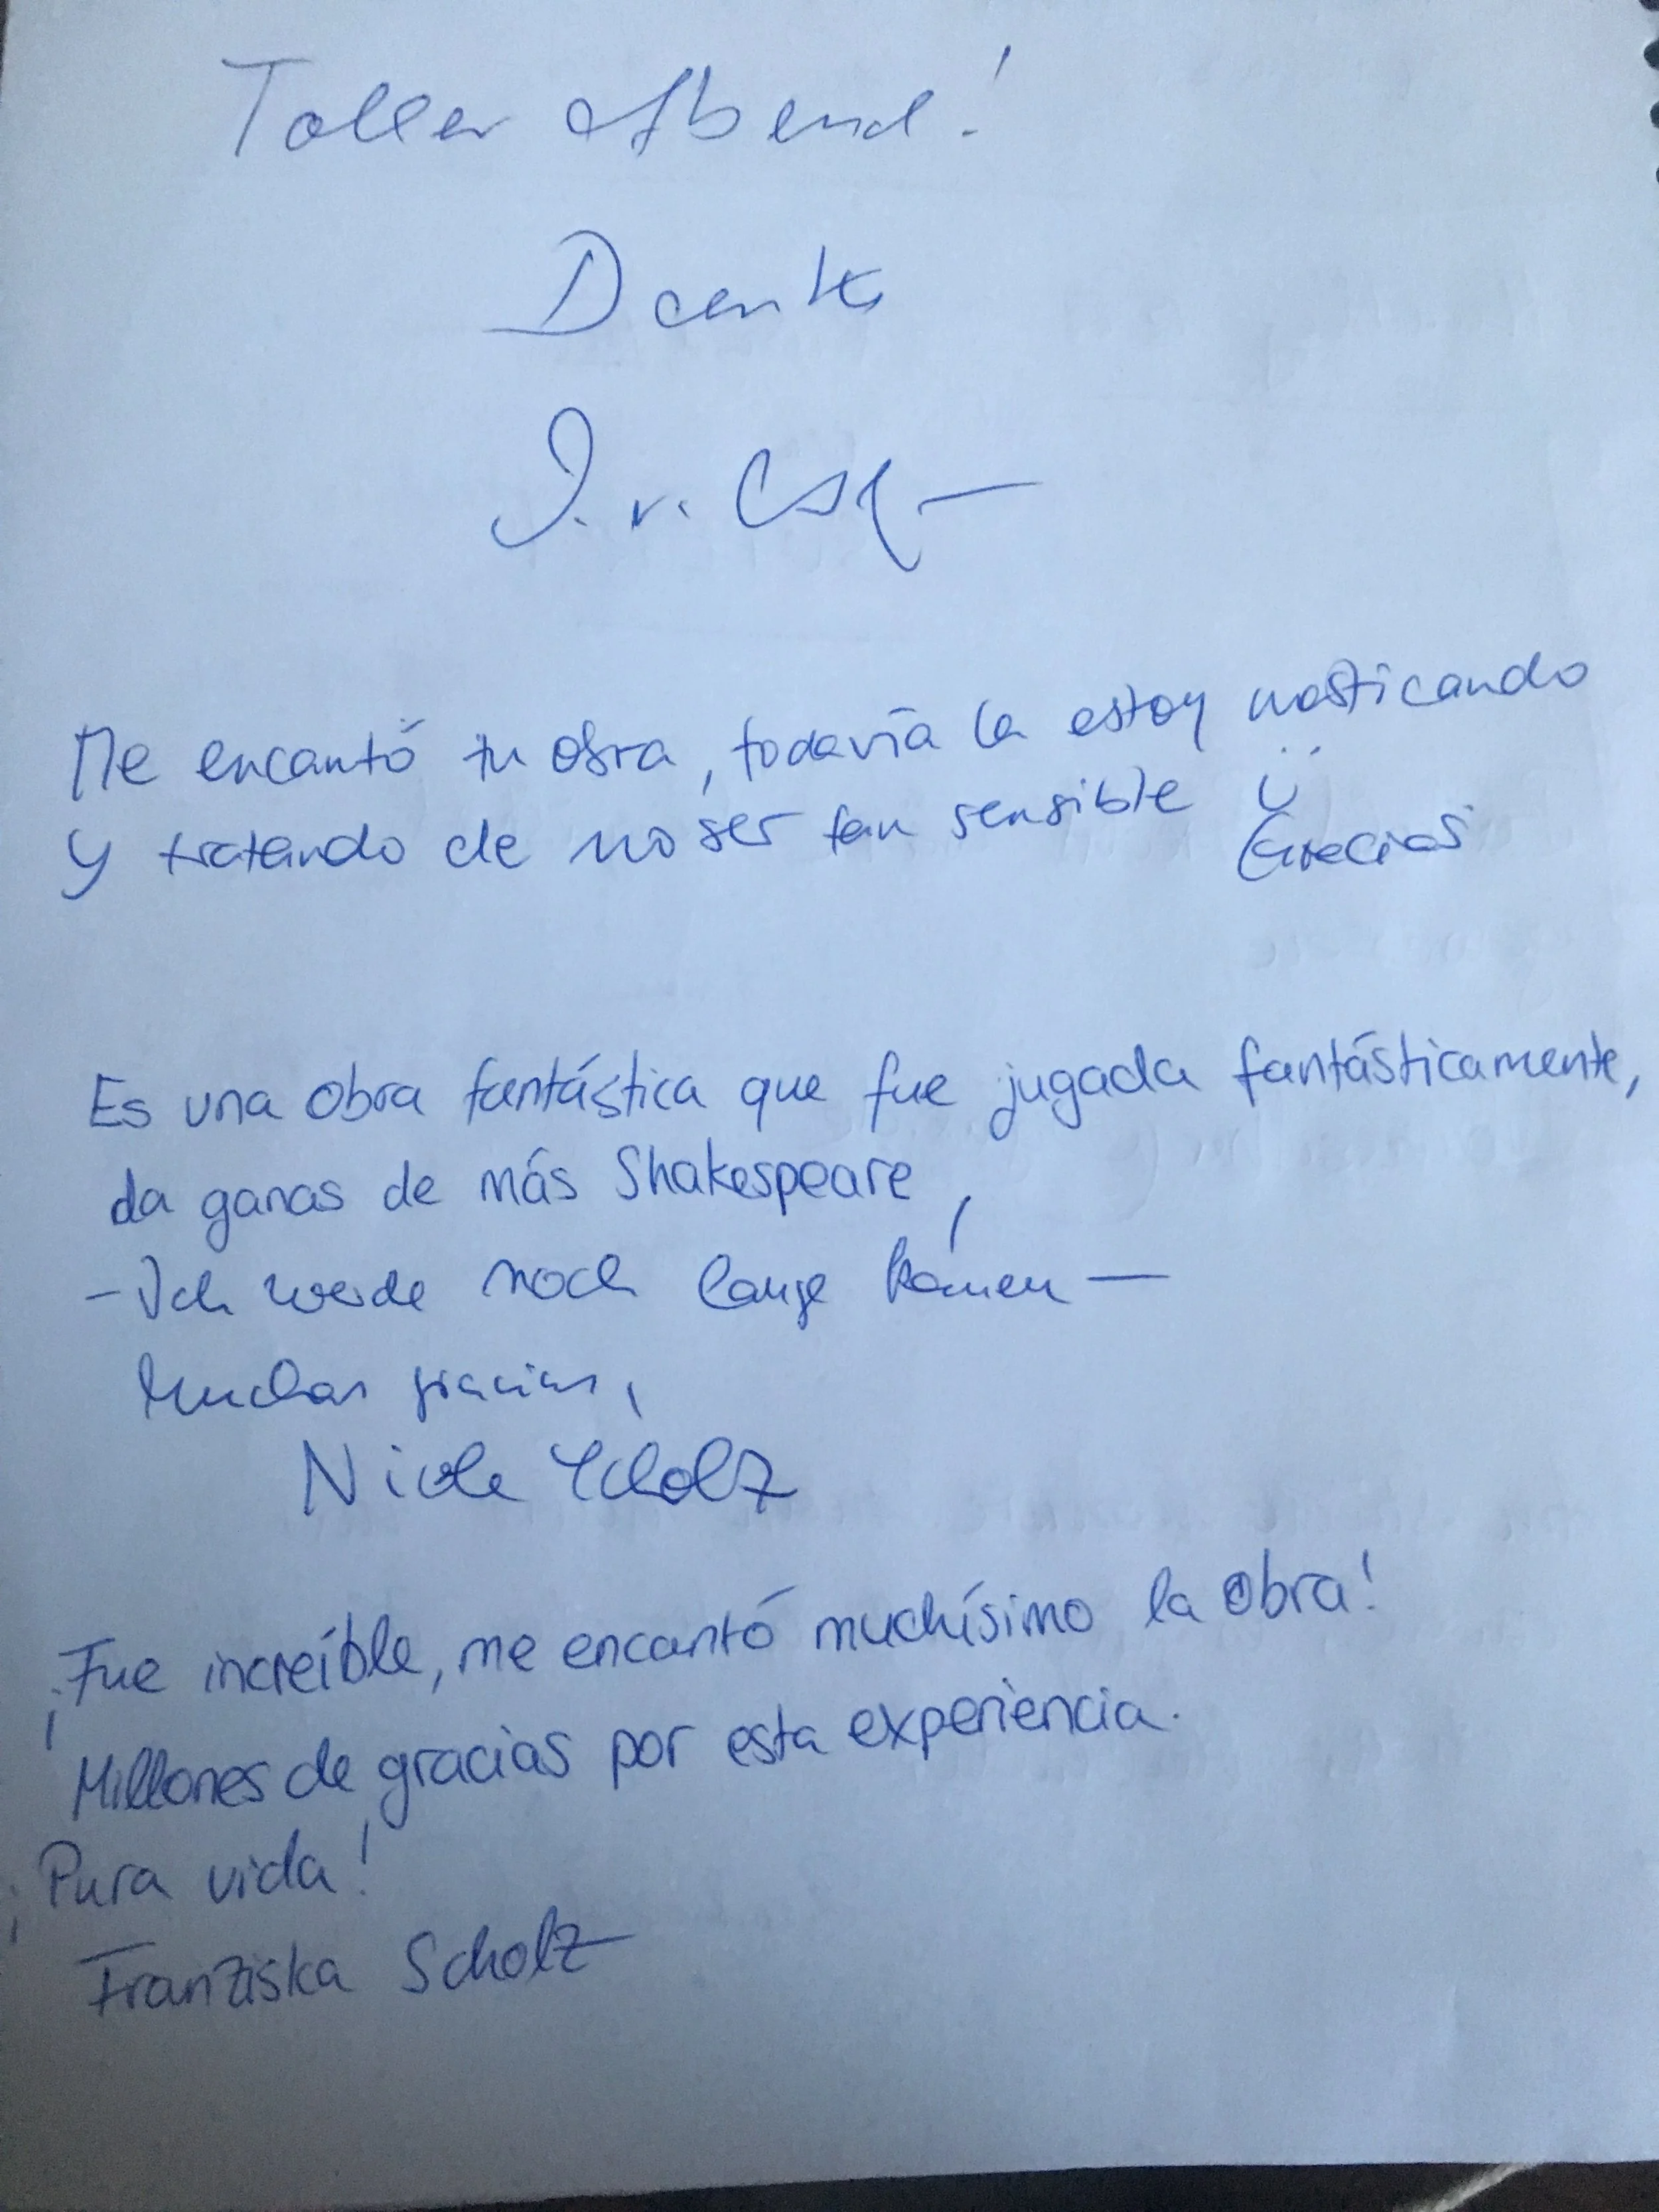 Toller Abend!
Dank
Me encantó tu obra, todavía la estoy masticando
y tratando de no ser tan sensible ü
Gracias
Es una obra fantástica que fue jugada fantásticamente,
da ganas de más Shakespeare,
- Ich werde noch lange
Muchas gracias,
Nicole Scholz
¡Fue increíble, me encantó muchísimo la obra!
Millones de gracias por esta experiencia.
¡Pura vida!
Franziska Scholz